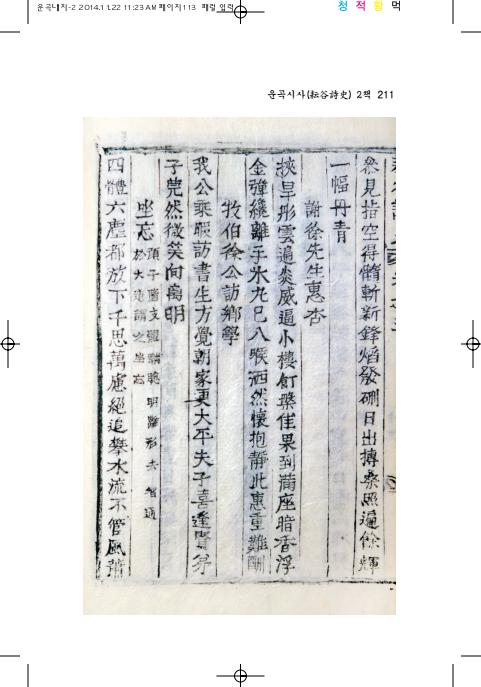 운곡대지-2 2014.11.22 11:23 AM 페이지113
청 적 황 먹
운곡시사(耘谷詩史) 2책 211
叅見指空得髓斬新鋒焰發硎日出搏桑照遍餘輝
一幅丹靑
謝徐先生惠杏
挾旱彤雲遍炎威逼小樓飣槃佳果到滿座暗香浮
金彈纔離手氷丸已入喉洒然懷抱靜此惠重難酬
牧伯徐公訪鄕學
我公乘暇訪書生方覺朝家更大平夫子喜逢賢弟
子莞然微笑向萬明
坐忘
顔子墮支體黜聰明離形去智通
於大道謂之坐忘
四體六塵都放下千思萬慮絕追攀水流不管風